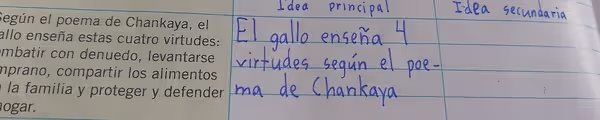 Idea principal
Idea secundaria
Según el poema de Chankaya, el
gallo enseña estas cuatro virtudes:
combatir con denuedo, levantarse
temprano, compartir los alimentos
la familia y proteger y defender
hogar.
El gallo enseña 4
virtudes según el poe-
ma de Chankaya